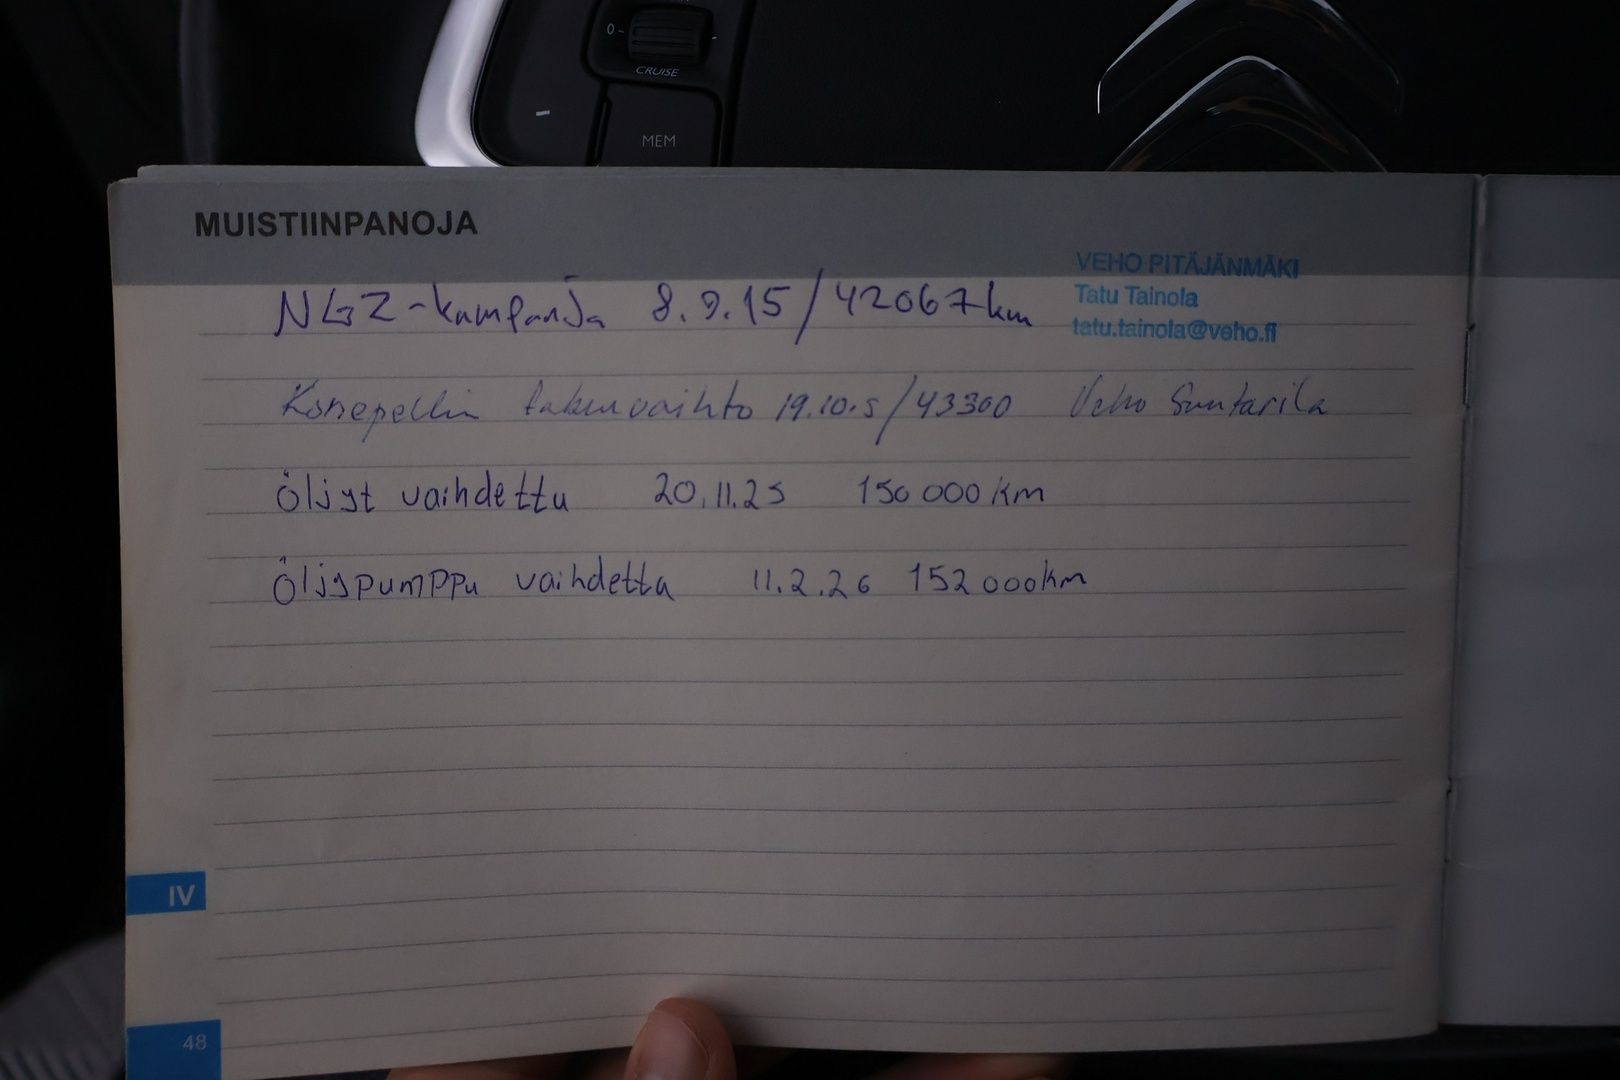 0 -
CRUISE
-
MEM
MUISTIINPANOJA
VEHO PITÄJÄNMÄKI
Tatu Tainola
tatu.tainola@veho.fi
NGZ-kampanja 8.9.15/42067km
Konepellin takuuvaihto 19.10.5/43300 Veho Suutarila
Öljyt vaihdettu 20.11.25 150 000 km
Öljypumppu vaihdettu 11.2.26 152 000km
IV
48